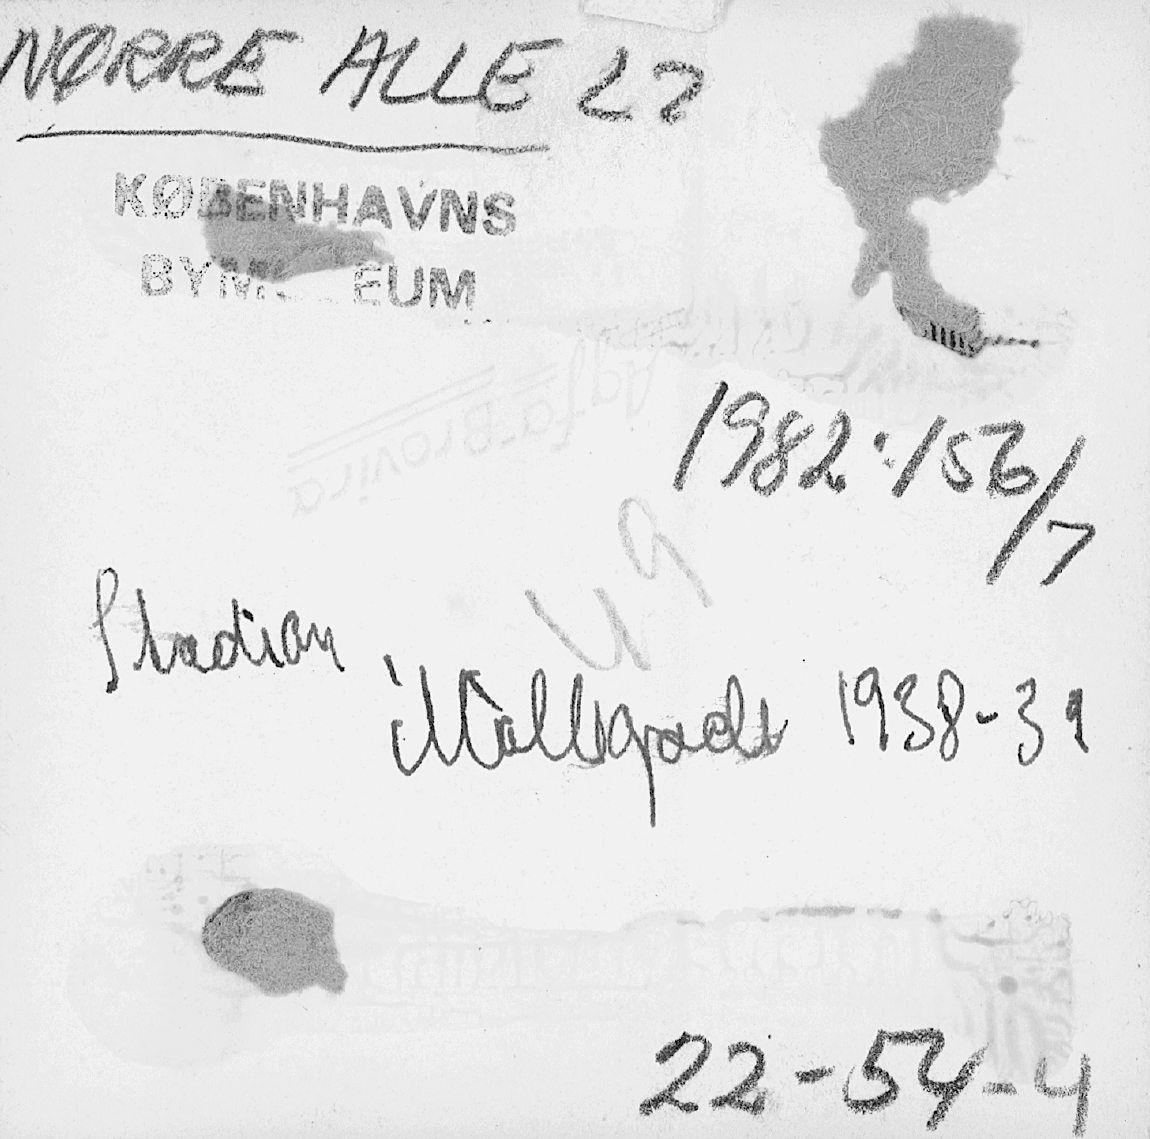 NØRRE ALLE 27
KØBENHAVNS
BYM EUM
Agfa-Brovira
1982:156/7
Stadion
1938-39
22-54-4